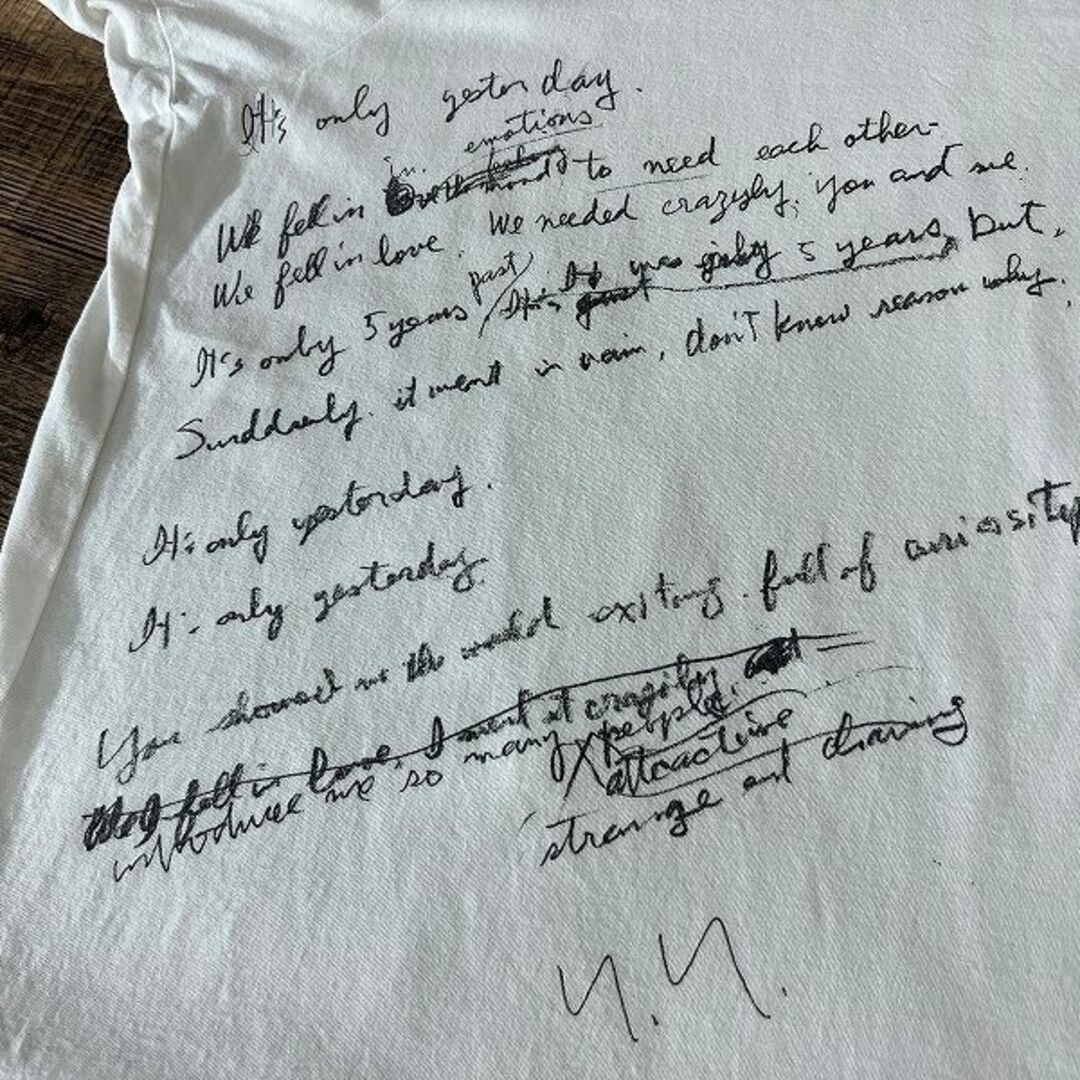 It's only yesterday.
in emotions
We fell in to need each other
We fell in love. We needed crazyly, you and me.
It's only 5 years past It's It was only 5 years, but,
Surddenly. it went in vain, don't know reason why.
It's only yesterday.
It's only yesterday.
You showed me the world exiting. full of curiosity
fell in love. I went it crazily
introduce me so many people
attractive
strange and charming
Y.Y.